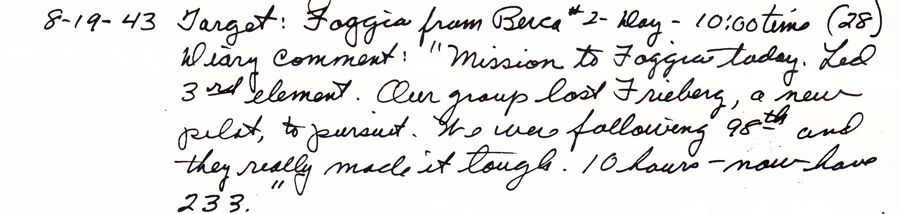 8-19-43 Target: Foggia from Berca #2 - Day - 10:00 time (28)
Diary comment: "Mission to Foggia today. Led
3rd element. Our group lost Frieberg, a new
pilot, to pursuit. We were following 98th and
they really made it tough. 10 hours - now have
233."